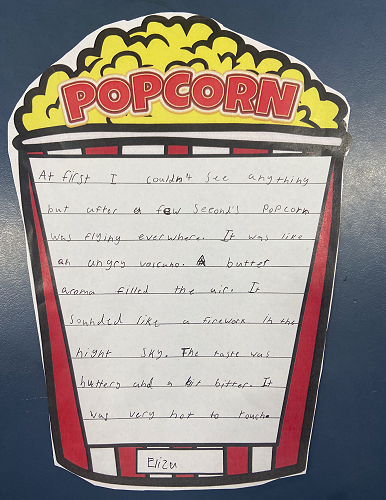 POPCORN
At first I couldn't see anything
but after a few second's popcorn
was flying everwhere. It was like
an angry volcano. A butter
aroma filled the air. It
sounded like a firework in the
night sky. The taste was
buttery and a bit bitter. It
was very hot to touch.